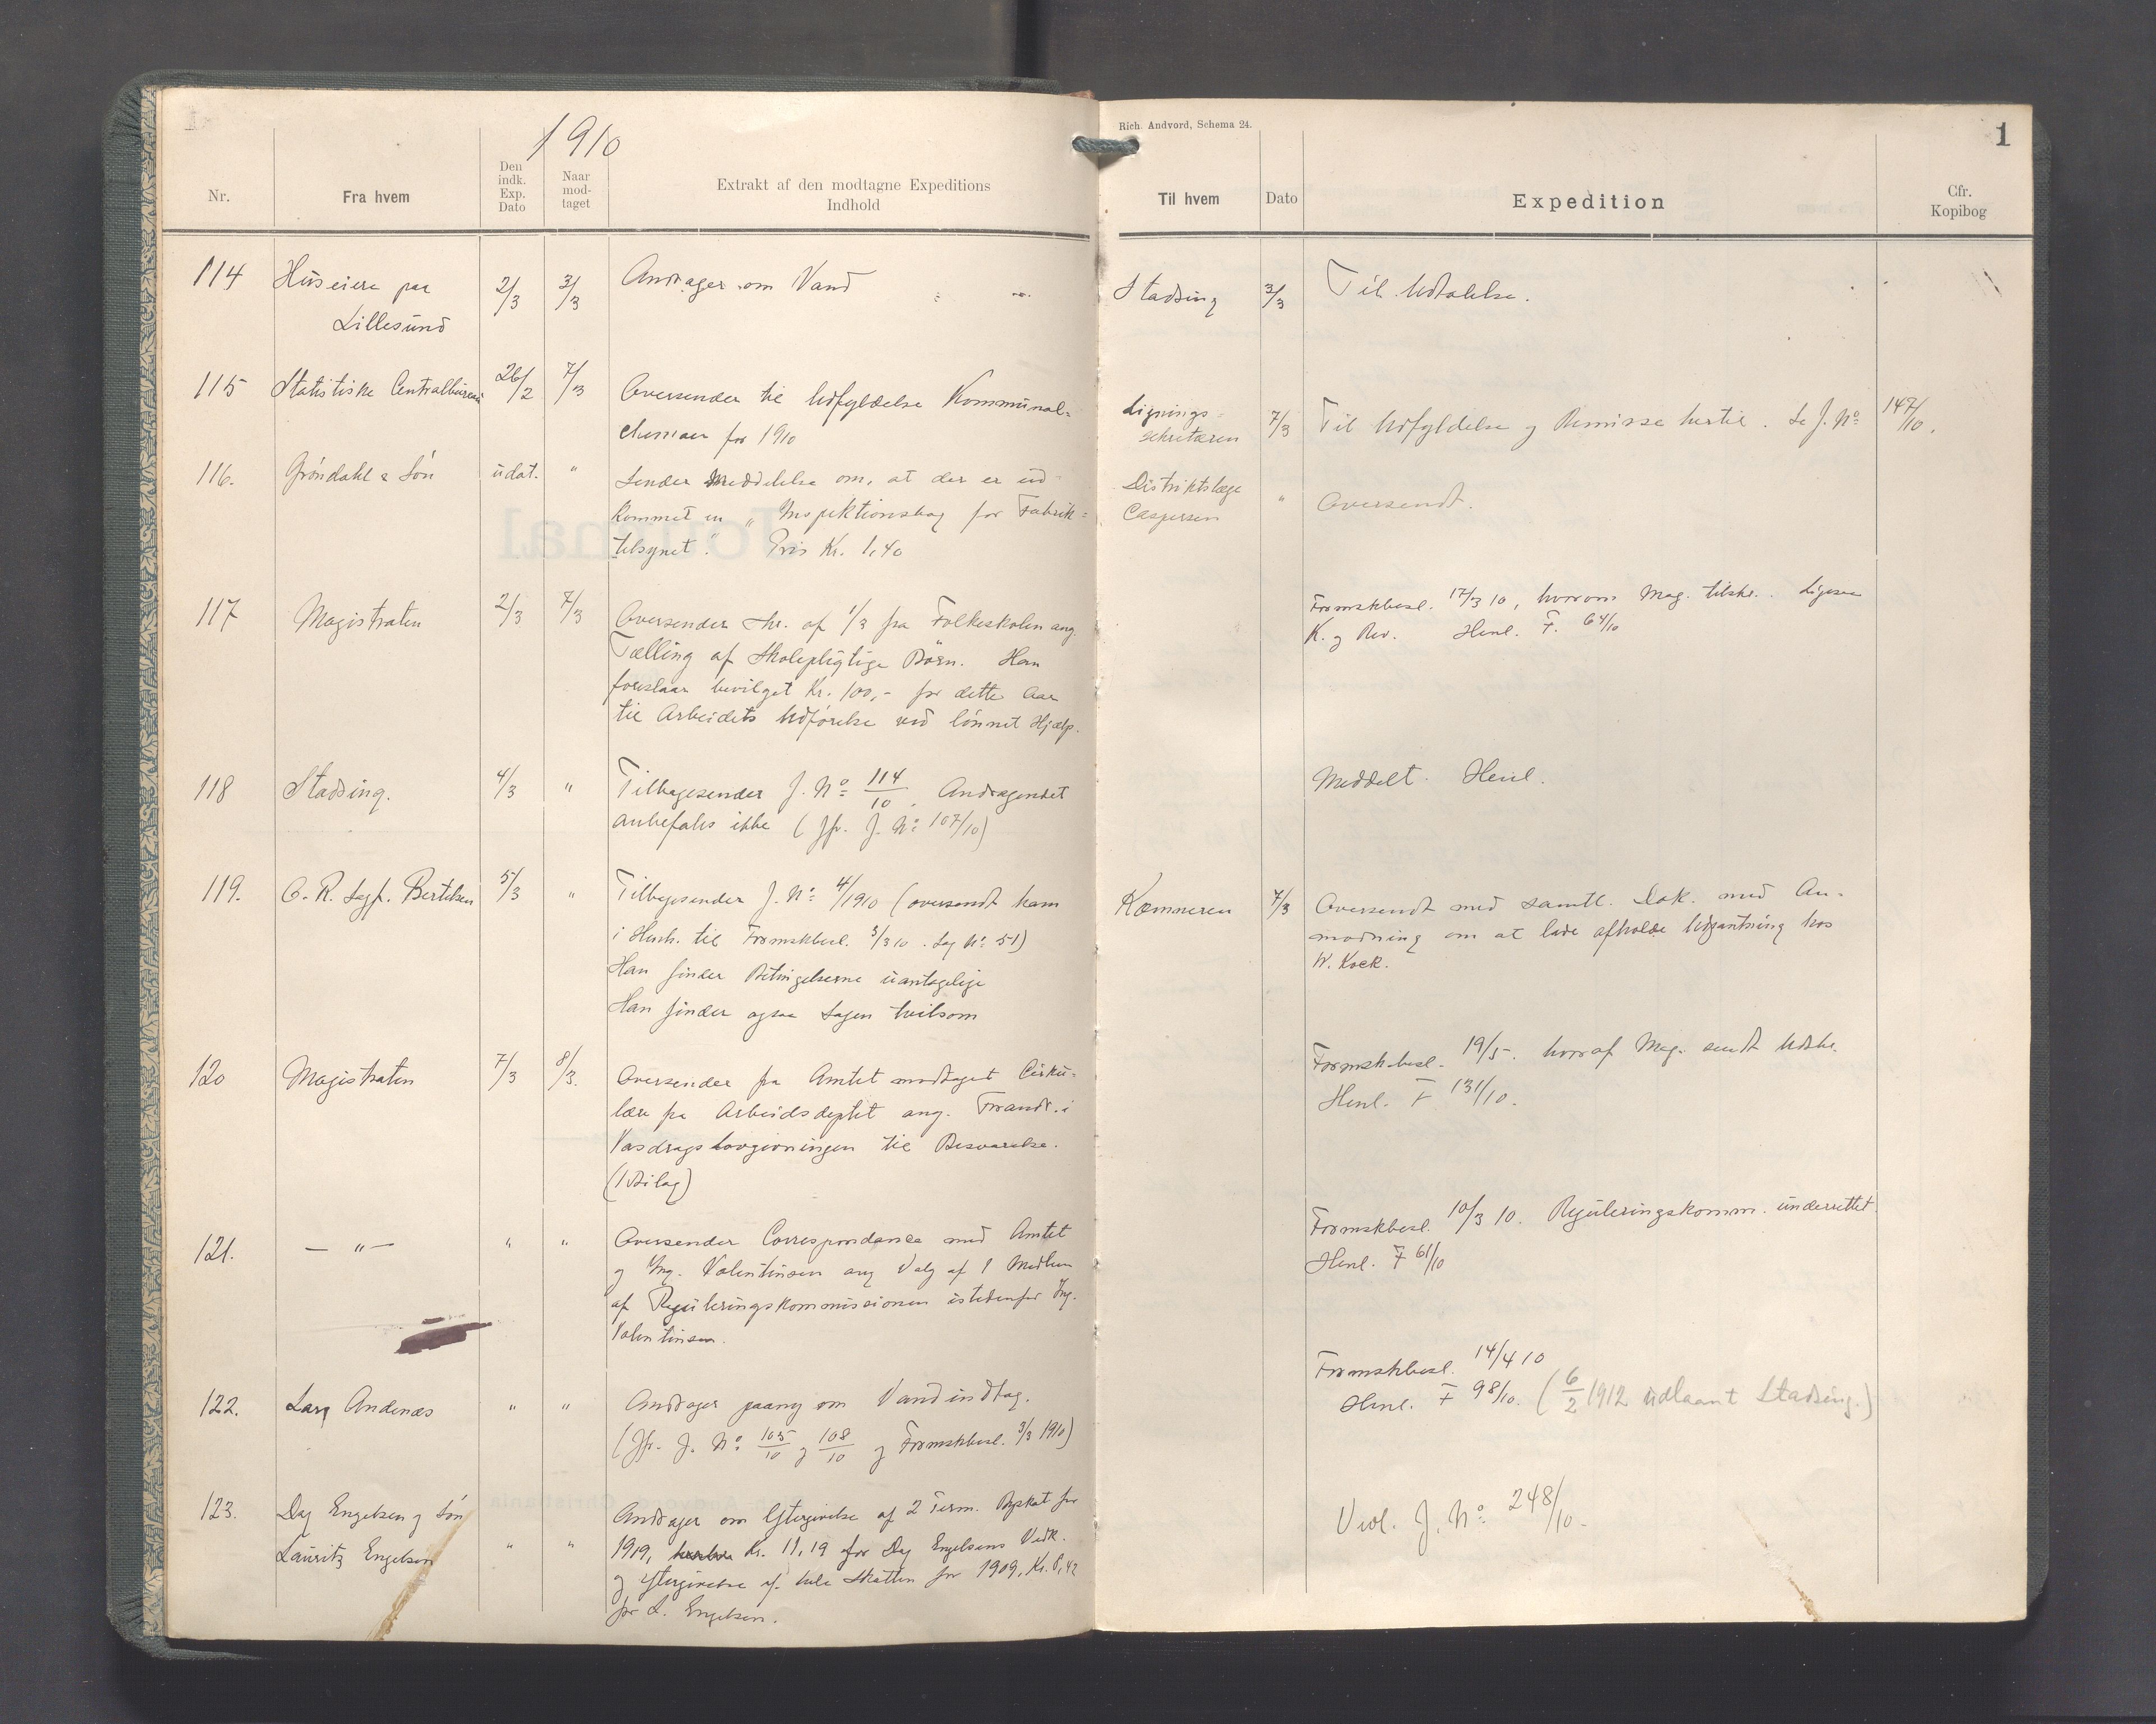 1910
Rich. Andvord, Schema 24.
1
Nr.
Fra hvem
Den indk. Exp. Dato
Naar mod-taget
Extrakt af den modtagne Expeditions Indhold
Til hvem
Dato
Expedition
Cfr. Kopibog
114 Huseiere paa 2/3 3/3 Andrager om Vand Stadsing 3/3 Til Udtalelse.
Lillesund
115 Statistiske Centralbureau 26/2 7/3 Oversender til Udfyldelse Kommunal-
skemaer for 1910
Lignings-
sekretæren 7/3 Til Udfyldelse og Remisse hertil. Se J. No 147/10.
116. Gröndahl & Sön udat. " Sender Meddelelse om, at der er ud-
kommet en "Inspektionsbog for Fabrik-
tilsynet". Pris Kr. 1,40
Distriktslæge
Caspersen " Oversendt.
117 Magistraten 2/3 7/3 Oversender Skr. af 1/3 fra Folkeskolen ang.
Tælling af Skolepligtige Börn. Han
foreslaar bevilget Kr. 100,- for dette Aar
til Arbeidets Udförelse ved lönnet Hjælp.
Formskbesl. 17/3 10, hvorom Mag. tilskr. Ligesaa
K. og Rev. Henl. F. 64/10
118 Stadsing. 4/3 " Tilbagesender J. No 114/10. Andragendet
anbefales ikke (Jfr. J. No 107/10)
Meddelt. Henl.
119. O. R. Sagf. Bertelsen 5/3 " Tilbagesender J. No 4/1910 (oversendt ham
i Henh. til Formskbesl. 3/3 10. Sag No 51)
Han finder Betingelserne uantagelige
Han finder ogsaa Sagen tvilsom
Kæmneren 7/3 Oversendt med samtl. Dok. med An-
modning om at lade afholde Udpantning hos
W. Kock.
120 Magistraten 7/3 8/3. Oversender fra Amtet modtaget Cirku-
lære fra Arbeidsdeptet ang. Forandr. i
Vasdragslovgivningen til Besvarelse.
(1 Bilag)
Formskbesl. 19/5. hvoraf Mag. sendt Udskr.
Henl. F 131/10.
121. — " — " " Oversender Correspondance med Amtet
og Ing. Valentinsen ang Valg af 1 Medlem
af Reguleringskommissionen istedenfor Ing.
Valentinsen.
Formskbesl. 10/3 10. Reguleringskomm. underrettet.
Henl. F 61/10
122. Lars Andenæs " " Andrager paany om Vandindtag.
(Jfr. J. No 105/10 og 108/10 og Formskbesl. 3/3 1910)
Formskbesl. 14/4 10
Henl. F 98/10. (6/2 1912 udlaant Stadsing.)
123. Dag Engelsen og Sön
Lauritz Engelsen " " Andrager om Eftergivelse af 2 Term. Byskat for
1909, Kr. 11,19 for Dag Engelsens Vedk.
og Eftergivelse af hele Skatten for 1909, Kr. 8,42
for L. Engelsen.
Vedl. J. No 248/10.